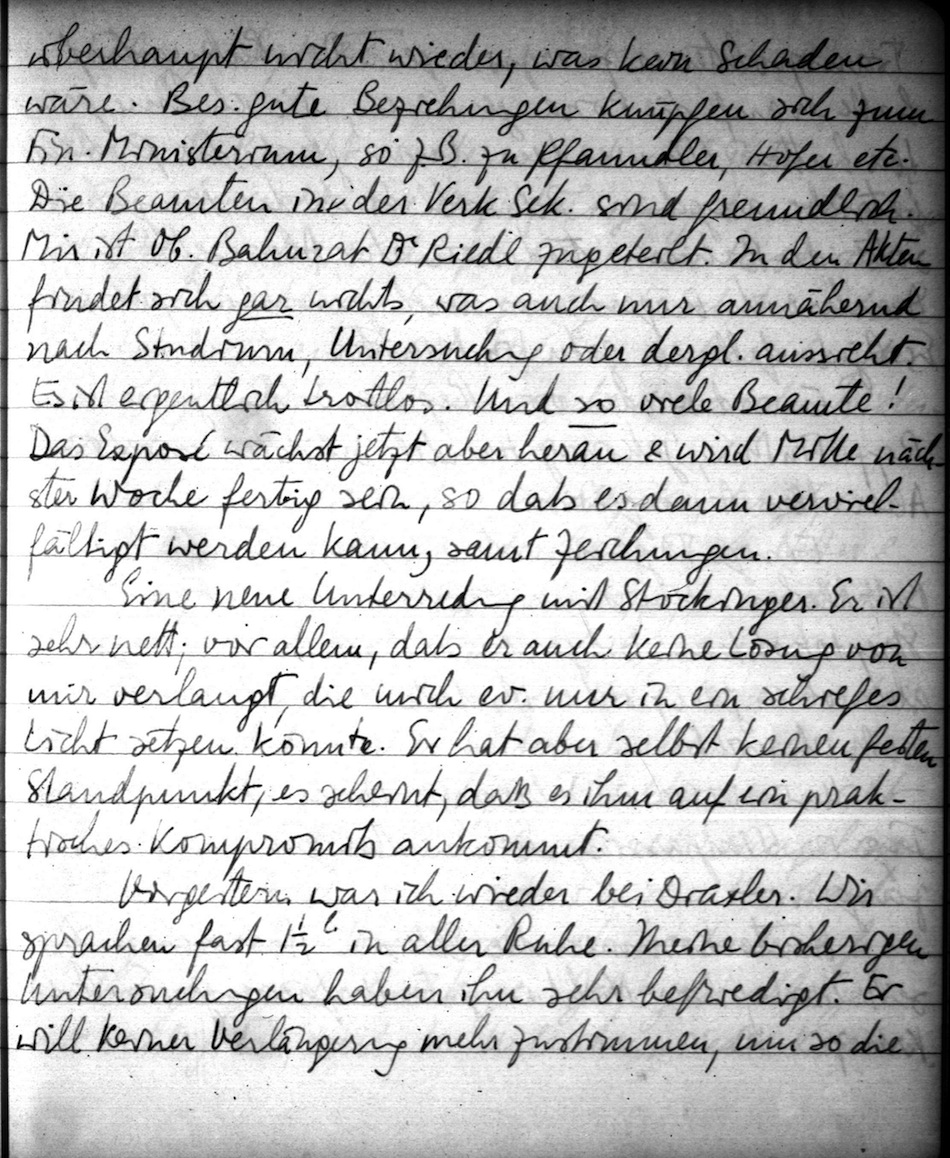 überhaupt nicht wieder, was kein Schaden
wäre. Bes. gute Beziehungen knüpfen sich zum
Fin. Ministerium, so z.B. zu Pfaundler, Hofer etc.
Die Beamten in der Verk Sek. sind freundlich.
Mir ist Ob. Bahnrat Dr Riedl zugeteilt. In den Akten
findet sich gar nichts, was auch nur annähernd
nach Studium, Untersuchg oder dergl. aussieht.
Es ist eigentlich trostlos. Und so viele Beamte!
Das Exposé wächst jetzt aber heran & wird Mitte näch-
ster Woche fertig sein, so daß es dann verviel-
fältigt werden kann, samt Zeichnungen.
Eine neue Unterredng mit Stockinger. Er ist
sehr nett; vor allem, daß er auch keine Lösung von
mir verlangt, die mich ev. nur in ein schiefes
Licht setzen könnte. Er hat aber selbst keinen festen
Standpunkt, es scheint, daß es ihm auf ein prak-
tisches Kompromiß ankommt.
Vorgestern war ich wieder bei Draxler. Wir
sprachen fast 1½ in aller Ruhe. Meine bisherigen
Untersuchungen haben ihn sehr befriedigt. Er
will keiner Verlängerung mehr zustimmen, um so die